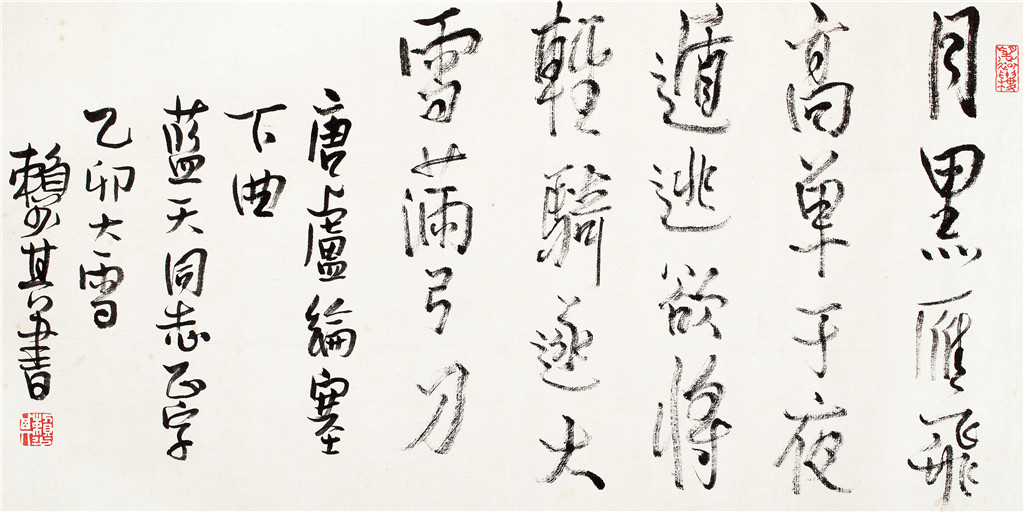 月黑雁飛
高单于夜
遁逃欲將
輕騎逐大
雪滿弓刀
唐盧綸塞
下曲
藍天同志正字
乙卯大雪
賴少其書